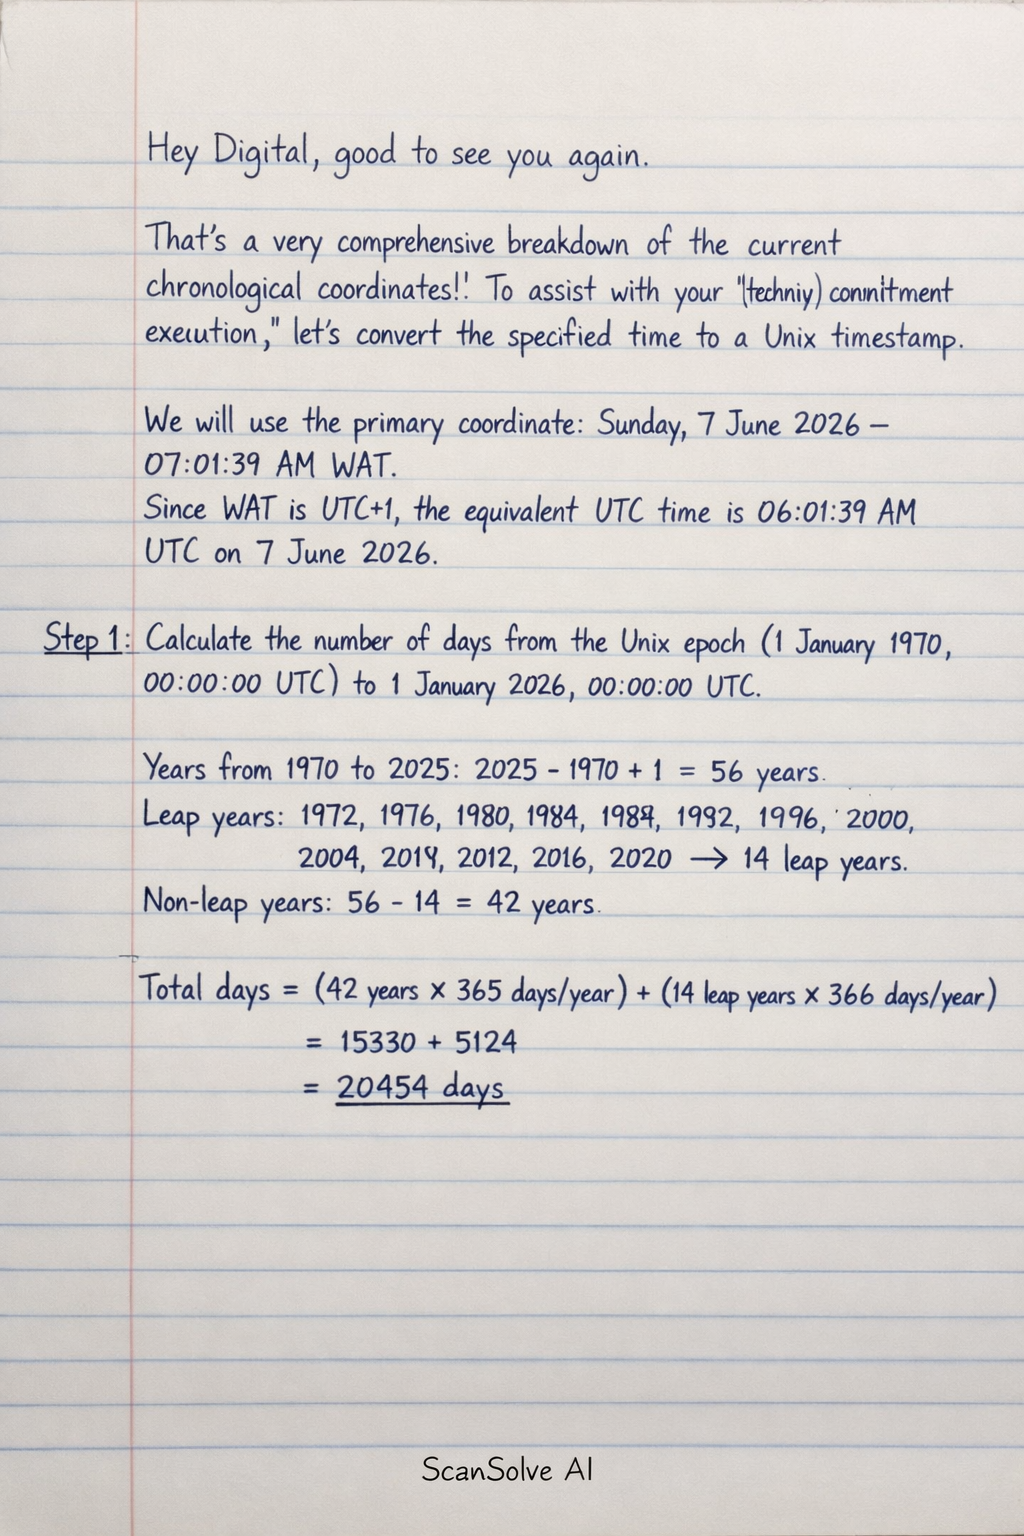 Hey Digital, good to see you again.
That's a very comprehensive breakdown of the current
chronological coordinates!! To assist with your "(techniy) connitment
exeiution," let's convert the specified time to a Unix timestamp.
We will use the primary coordinate: Sunday, 7 June 2026 –
07:01:39 AM WAT.
Since WAT is UTC+1, the equivalent UTC time is 06:01:39 AM
UTC on 7 June 2026.
Step 1: Calculate the number of days from the Unix epoch (1 January 1970,
00:00:00 UTC) to 1 January 2026, 00:00:00 UTC.
Years from 1970 to 2025: 2025 - 1970 + 1 = 56 years.
Leap years: 1972, 1976, 1980, 1984, 1984, 1992, 1996, 2000,
2004, 2014, 2012, 2016, 2020 → 14 leap years.
Non-leap years: 56 - 14 = 42 years.
Total days = (42 years × 365 days/year) + (14 leap years × 366 days/year)
= 15330 + 5124
= 20454 days
ScanSolve AI